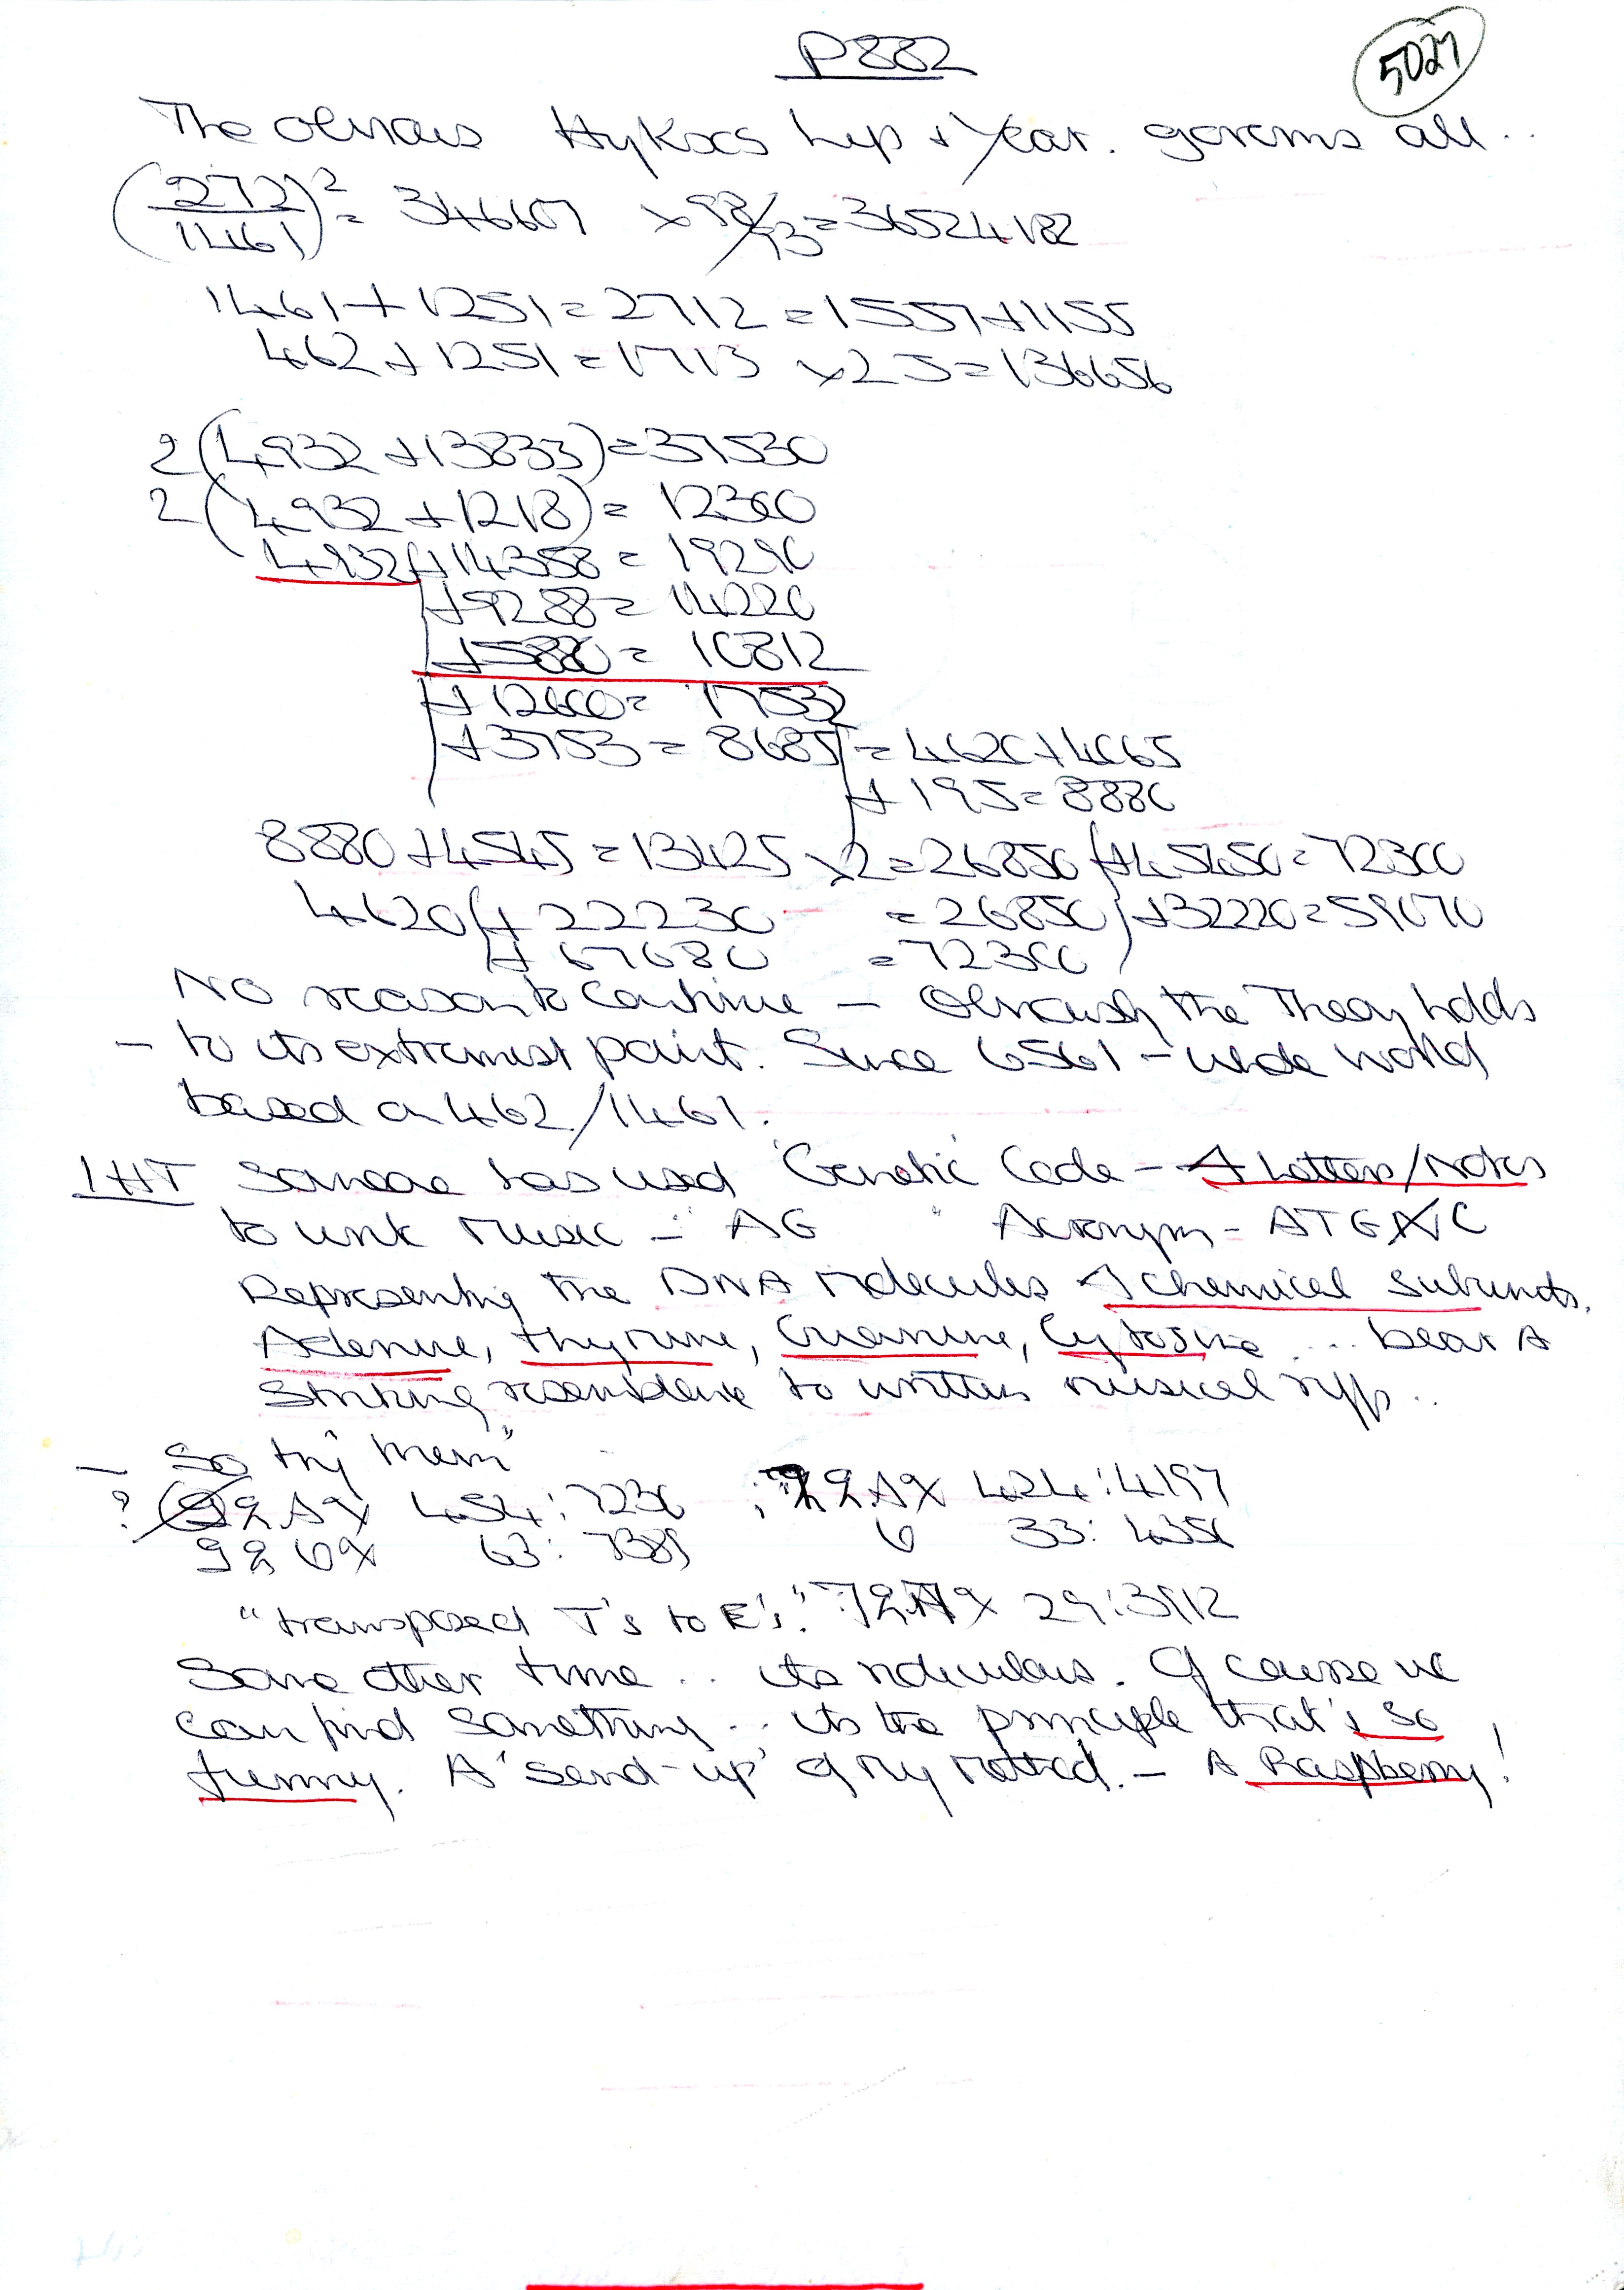 P882
5027
The obvious Hyksos hup + year. governs all..
(272/1461)² = 346607 x 98/93 = 36524182
1461 + 1251 = 2712 = 1557 + 1155
462 + 1251 = 1713 x 25 = 136656
2(4932 + 13833) = 37530
2(4932 + 1218) = 12300
4932(+ 14358 = 19290
+ 9288 = 14220
+ 5880 = 10812
+ 12600 = 17532
+ 3753 = 8685 = 4620 + 4065
+ 195 = 8880
8880 + 4545 = 13425 x 2 = 26850 (+ 45450 = 72300
4620 (+ 22230 = 26850 ) + 32220 = 59070
+ 67680 = 72300
No reason to continue — Obviously the Theory holds
— to its extremist point. Since 6561 — whole world
based on 462/1461.
IHT Someone has used 'Genetic Code — 4 Letters/Notes
to write Music — AG " Acronym — ATGC
Representing the DNA molecules 4 chemical subunits.
Adenine, thymine, Guanine, Cytosine ... bear a
striking resemblance to written musical riffs..
— So try them"
454 : 7236 424 : 4197
63 : 7389 6 33 : 4356
"transposed T's to E's." 29 : 3912
Some other time .. its ridiculous. Of course we
can find something .. its the principle that's so
funny. A 'send-up' of my method. — A Raspberry!